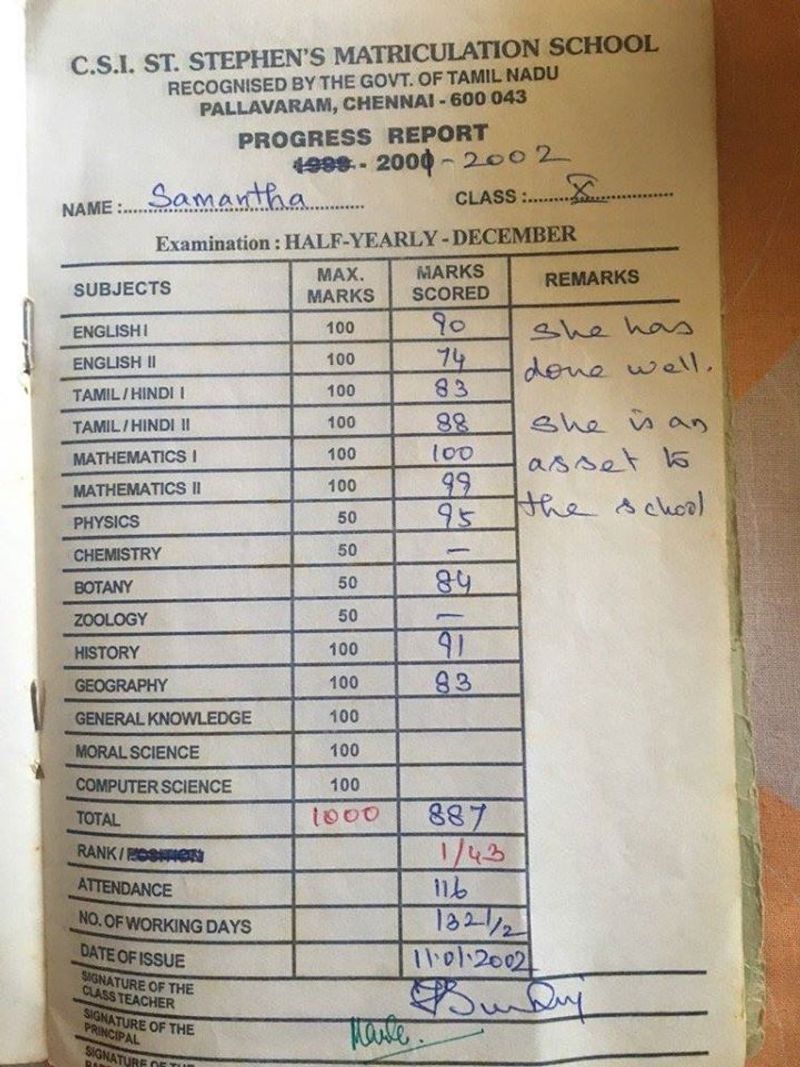 C.S.I. ST. STEPHEN'S MATRICULATION SCHOOL
RECOGNISED BY THE GOVT. OF TAMIL NADU
PALLAVARAM, CHENNAI - 600 043
PROGRESS REPORT
1999 - 2001 - 2002
NAME : Samantha CLASS : X
Examination : HALF-YEARLY - DECEMBER
SUBJECTS MAX. MARKS MARKS SCORED REMARKS
ENGLISH I 100 90 She has
ENGLISH II 100 74 done well.
TAMIL / HINDI I 100 83
TAMIL / HINDI II 100 88 She is an
MATHEMATICS I 100 100 asset to
MATHEMATICS II 100 99 the school
PHYSICS 50 95
CHEMISTRY 50 —
BOTANY 50 84
ZOOLOGY 50 —
HISTORY 100 91
GEOGRAPHY 100 83
GENERAL KNOWLEDGE 100
MORAL SCIENCE 100
COMPUTER SCIENCE 100
TOTAL 1000 887
RANK / POSITION 1/43
ATTENDANCE 116
NO. OF WORKING DAYS 132 1/2
DATE OF ISSUE 11.01.2002
SIGNATURE OF THE CLASS TEACHER
SIGNATURE OF THE PRINCIPAL
SIGNATURE OF THE